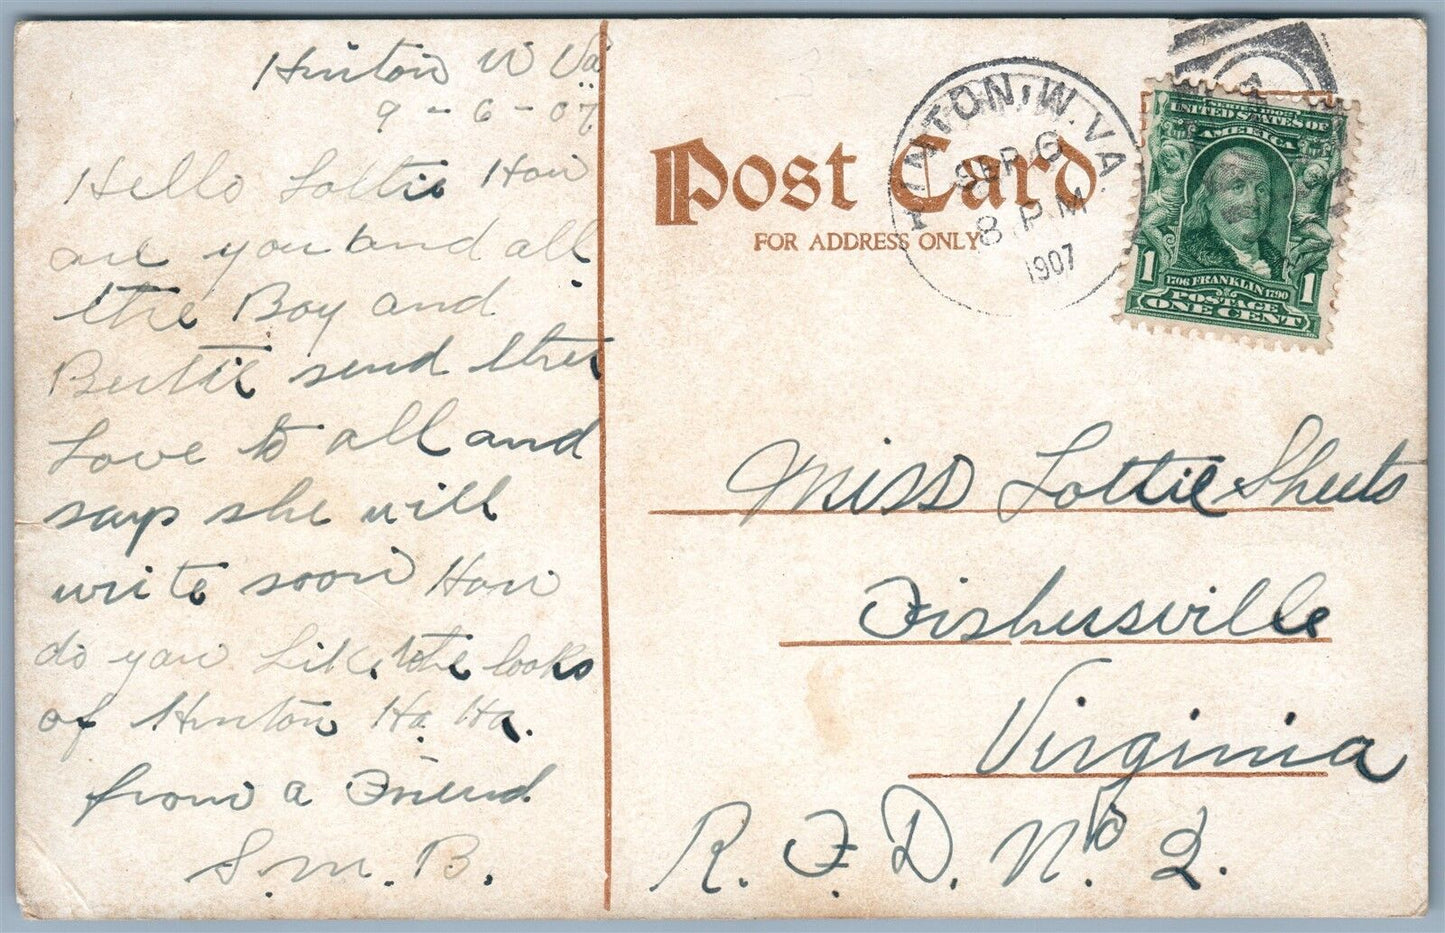 Hinton W Va
9 - 6 - 07
Hello Lottie How
are you and all
the Boy and
Bertie send ther
Love to all and
says she will
write soon How
do you Like the looks
of Hinton Ha Ha.
from a Friend
S. M. B.
Post Card
FOR ADDRESS ONLY
HINTON, W. VA.
SEP 6
8 P M
1907
SERIES 1902
UNITED STATES OF
AMERICA
1
1
1706 FRANKLIN 1790
POSTAGE
ONE CENT
Miss Lottie Sheets
Fishersville
Virginia
R. F. D. No 2.